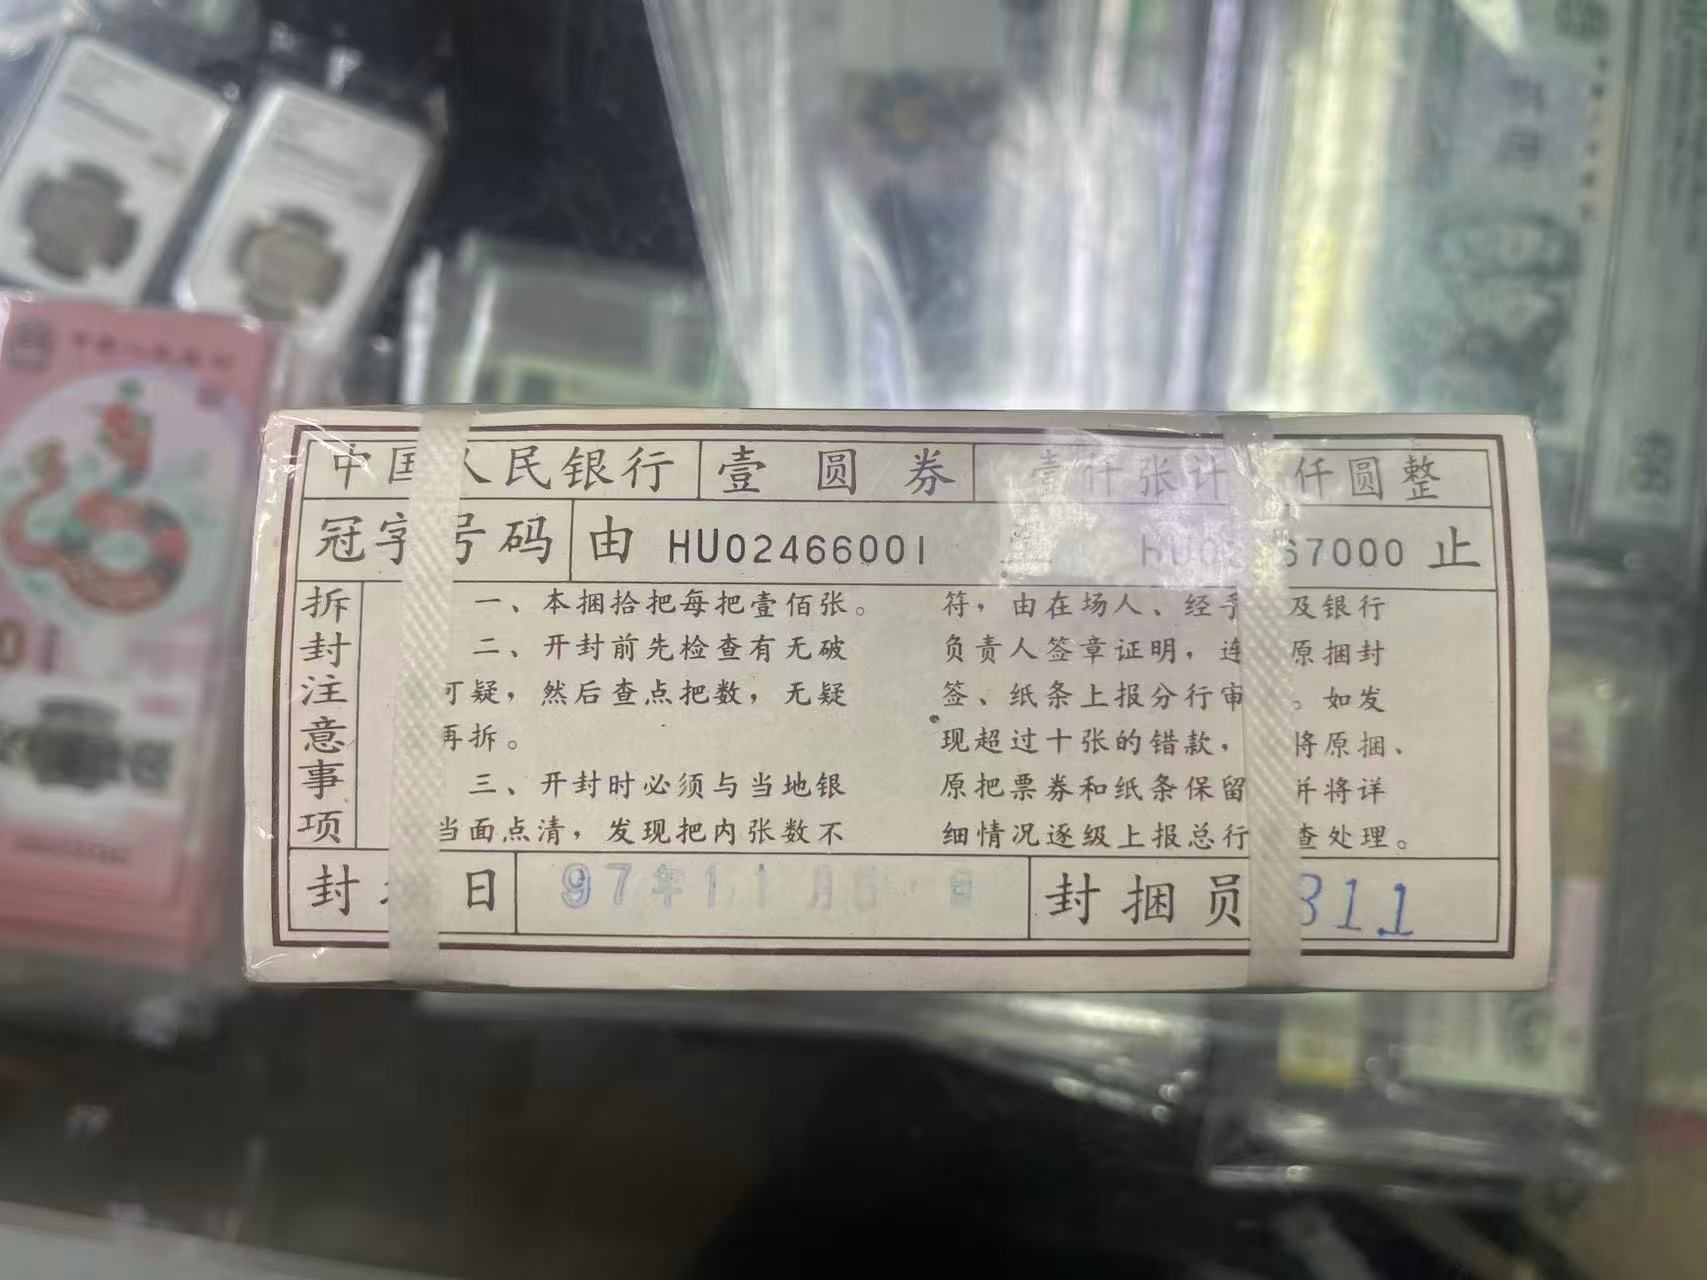 中国人民银行 壹圆券 壹仟张计 仟圆整
冠字号码 由 HU02466001 HU0 67000 止
拆封注意事项
一、本捆拾把每把壹佰张。
二、开封前先检查有无破
可疑，然后查点把数，无疑
再拆。
三、开封时必须与当地银
当面点清，发现把内张数不
符，由在场人、经手 及银行
负责人签章证明，连 原捆封
签、纸条上报分行审 。如发
现超过十张的错款， 将原捆、
原把票券和纸条保留 并将详
细情况逐级上报总行 查处理。
封 日 97年11月 日 封捆员 311